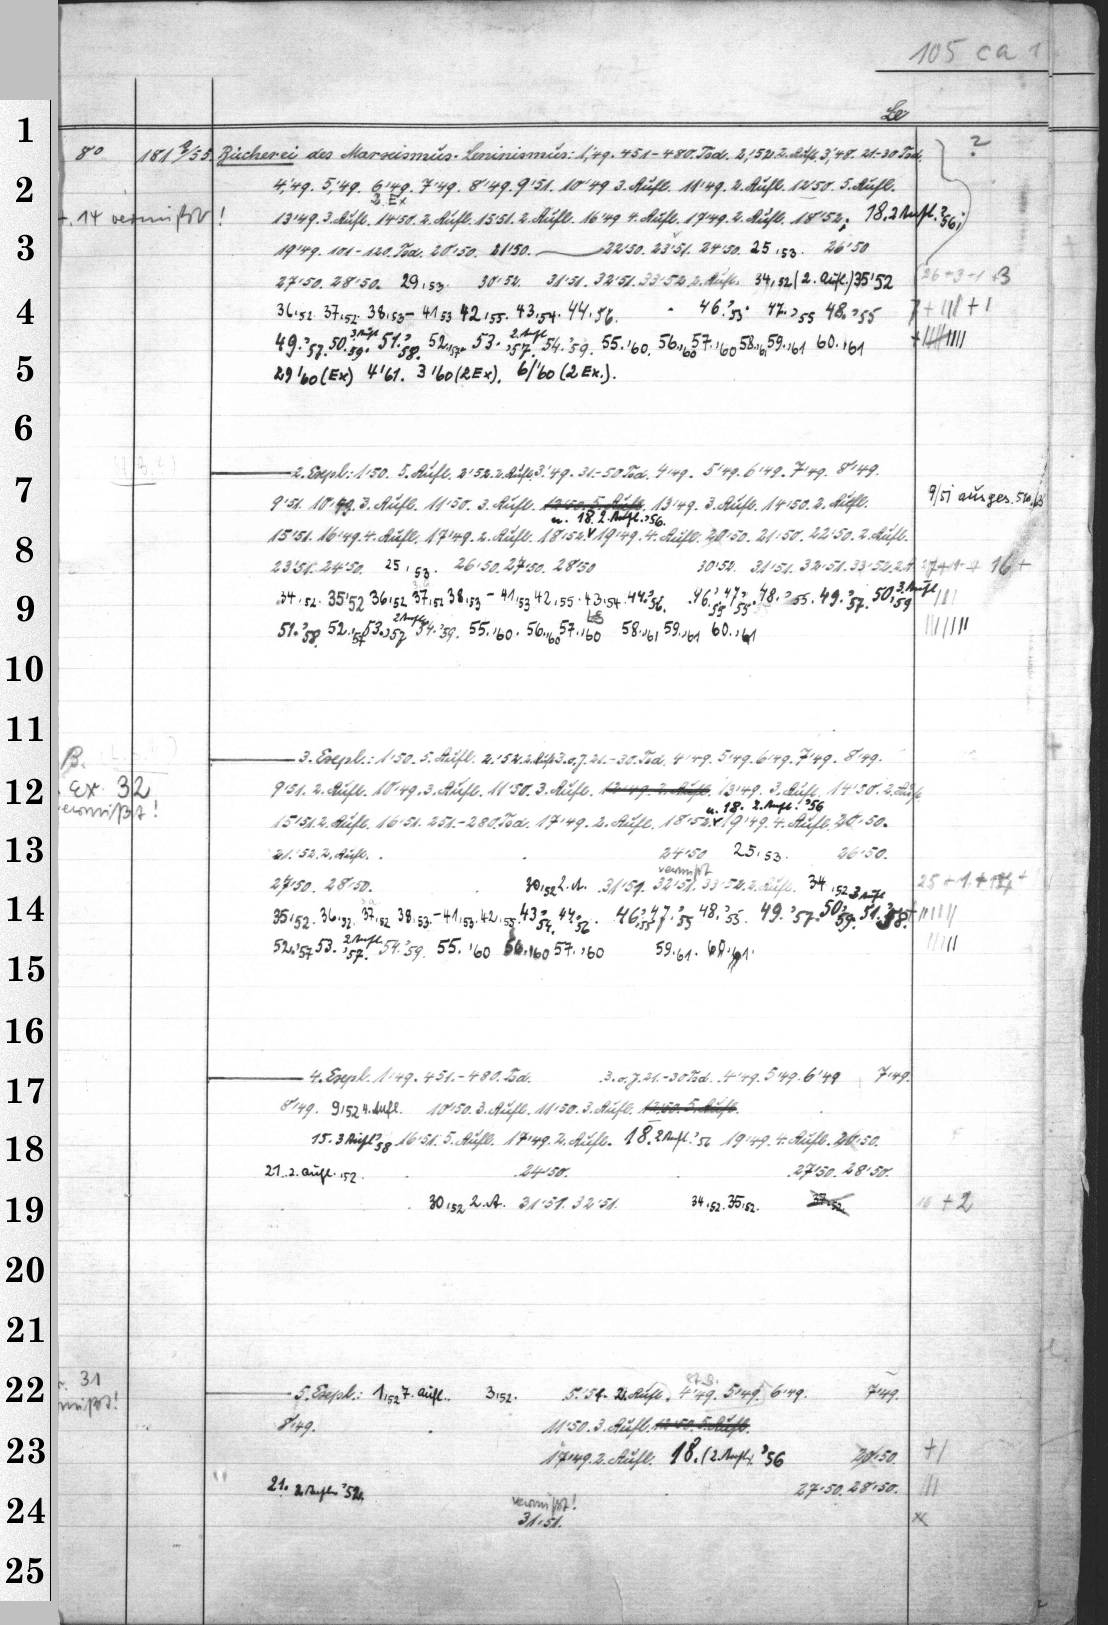 105 ca 1
Le
1 8° 181 2/55 Bücherei des Marxismus-Leninismus: 1,'49. 451-480.Tsd. 2,'52.2.Aufl. 3,'48. 21-30 Tsd. ?
2 4,'49. 5,'49. 6'49. 7'49. 8'49. 9'51. 10'49 3. Aufl. 11'49. 2. Aufl. 12'50. 5. Aufl.
2. Ex
14 vermißt! 13'49. 3. Aufl. 14'50. 2. Aufl. 15'51. 2. Aufl. 16'49 4. Aufl. 17'49. 2. Aufl. 18'52; 18. 2 Aufl.'56;
3 19'49. 101-120.Tsd. 20'50. 21'50. 22'50. 23'51. 24'50. 25,53. 26'50
27'50. 28'50. 29,53. 30'52. 31'51. 32'51. 33'52.2.Aufl. 34,52(2. Aufl.)35'52 26+3
4 36,52. 37,52. 38,53- 41,53 42,55. 43,54. 44,56. 46.'53. 47.,55 48.'55 7+III+1
49.'57. 50.'59. 3 Aufl 51.'58. 52,57. 53.'57. 2 Aufl 54.'59. 55.'60. 56,'60 57.'60 58,61 59.,61 60.,61
5 29'60(Ex) 4'61. 3'60(2Ex). 6/'60(2Ex.).
6
7 2. Expl.: 1'50. 5. Aufl. 2'52.2.Aufl. 3'49. 31-50 Tsd. 4'49. 5'49. 6'49. 7'49. 8'49.
9'51. 10'49. 3. Aufl. 11'50. 3. Aufl. 12'50. 5. Aufl. 13'49. 3. Aufl. 14'50. 2. Aufl. 9/51 ausges.
u. 18. 2 Aufl.'56.
8 15'51. 16'49. 4. Aufl. 17'49. 2. Aufl. 18'52. 19'49. 4. Aufl. 20'50. 21'50. 22'50. 2. Aufl.
23'51. 24'50. 25,53. 26'50. 27'50. 28'50 30'52. 31'51. 32'51. 33'52.2A 16+
9 34,52. 35'52 36,52 37,52 38,53 - 41,53 42,55. 43,54. 44.'56. 46.'53 47.'55. 48.'55. 49.'57. 50.'59 3. Aufl
51.'58. 52.,57 53.,'57 2 Aufl 54.'59. 55.,60. 56.,60 57.,60 58.,61 59.,61 60.,61
10
11
3. Expl.: 1'50. 5. Aufl. 2.'52.2.Aufl. 3.o.J. 21.-30.Tsd. 4'49. 5'49. 6'49. 7'49. 8'49.
12 Ex. 32 vermißt! 9'51. 2. Aufl. 10'49. 3. Aufl. 11'50. 3. Aufl. 12'49. 2. Aufl. 13'49. 3. Aufl. 14'50. 2. Aufl.
u. 18. 2 Aufl.'56
15'51.2.Aufl. 16'51. 251.-280.Tsd. 17'49. 2. Aufl. 18'52. 19'49. 4. Aufl. 20'50.
13 21.'52.2.Aufl. 24'50 25,53. 26'50.
vermißt
27'50. 28'50. 30,52 2. A. 31'51. 32'51. 33'52.2.Aufl. 34,52 25+1+
14 35,52. 36,52. 37,52 38,53.-41,53. 42,55. 43.'54. 44.'56. 46.'53 47.'55 48.'55. 49.'57. 50.'59. 3 Aufl 51.'58.
15 52.'57 53.'57. 2 Aufl 54.'59. 55.'60 56.,60 57.'60 59.,61. 60.,61.
16
17 4. Expl. 1'49. 451.-480.Tsd. 3.o.J. 21.-30 Tsd. 4'49. 5'49. 6'49 7'49.
8'49. 9,52 4. Aufl. 10'50. 3. Aufl. 11'50. 3. Aufl. 12,50. 5. Aufl.
18 15. 3 Aufl.'58 16'51. 5. Aufl. 17'49. 2. Aufl. 18. 2 Aufl.'56 19'49. 4. Aufl. 20'50.
21. 2. Aufl. ,52. 24'50. 27'50. 28'50.
19 30,52 2. A. 31'51. 32'51. 34,52. 35,52. 37,52. 16 +2
20
21
22 31 5. Expl.: 1,52 7. Aufl. 3,52. 5.'51. 2. Aufl. 4'49. 5'49. 6'49. 7'49.
8'49. 11'50. 3. Aufl. 12'50. 5. Aufl.
23 17'49. 2. Aufl. 18. (2 Aufl.)'56 20'50. +1
21. 2 Aufl.'52. 27'50. 28'50. III
24 vermißt!
31'51. x
25